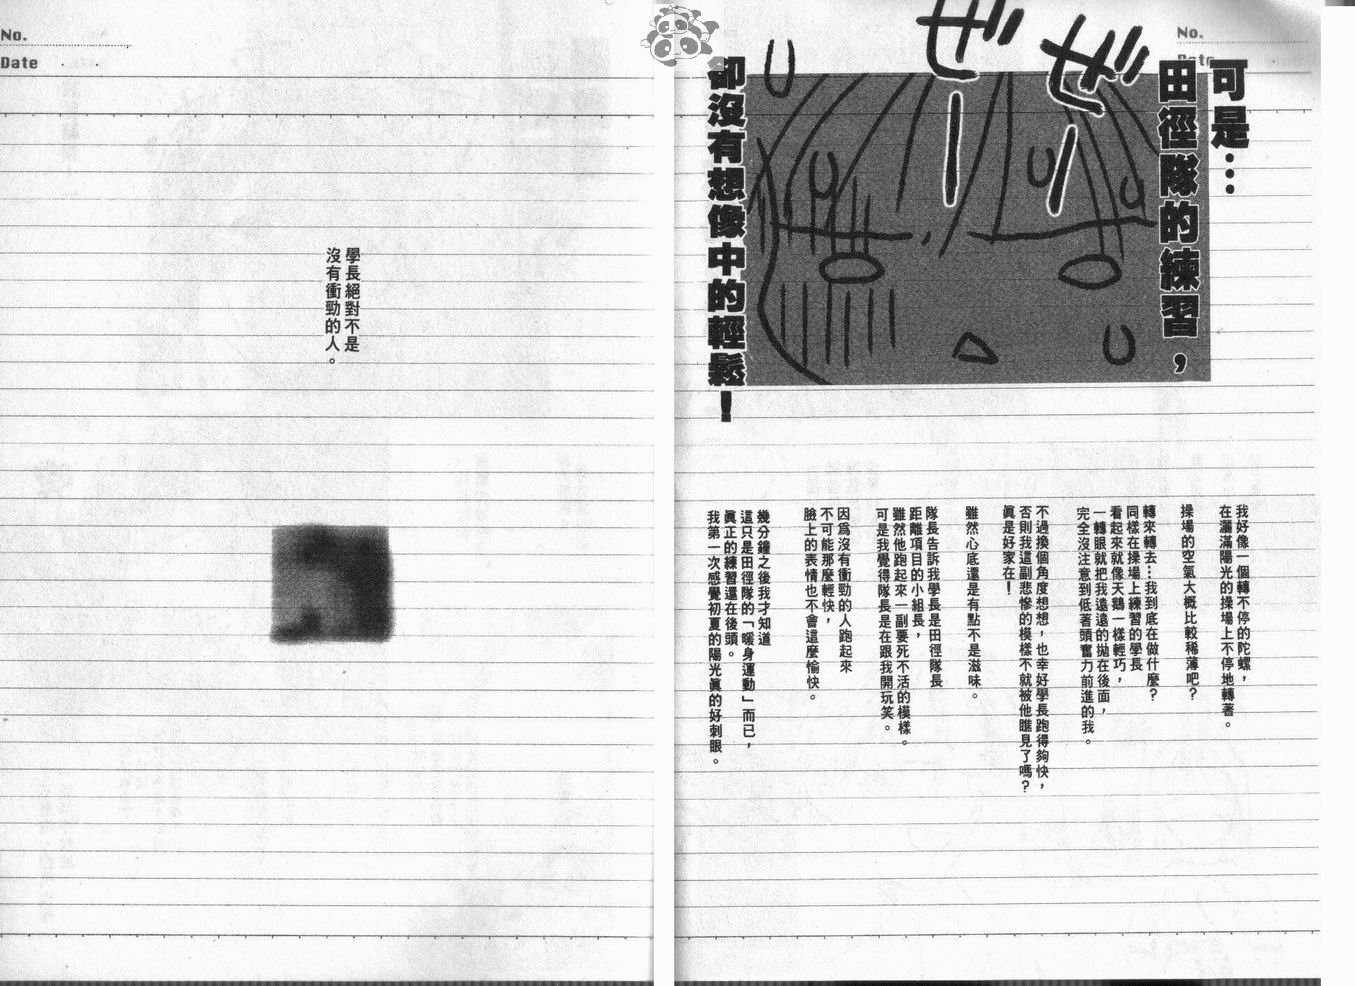 No.
Date
可是…
田徑隊的練習，
ぜー
ぜー
卻沒有想像中的輕鬆！
我好像一個轉不停的陀螺，
在灑滿陽光的操場上不停地轉著。
操場的空氣大概比較稀薄吧？
轉來轉去…我到底在做什麼？
同樣在操場上練習的學長
看起來就像天鵝一樣輕巧，
一轉眼就把我遠遠的拋在後面，
完全沒注意到低著頭奮力前進的我。
不過換個角度想想，也幸好學長跑得夠快，
否則我這副悲慘的模樣不就被他瞧見了嗎？
真是好家在！
雖然心底還是有點不是滋味。
隊長告訴我學長是田徑隊長
距離項目的小組長，
雖然他跑起來一副要死不活的模樣。
可是我覺得隊長是在跟我開玩笑。
因為沒有衝勁的人跑起來
不可能那麼輕快，
臉上的表情也不會這麼愉快。
幾分鐘之後我才知道
這只是田徑隊的「暖身運動」而已，
真正的練習還在後頭。
我第一次感覺初夏的陽光真的好刺眼。
No.
Date
學長絕對不是
沒有衝勁的人。